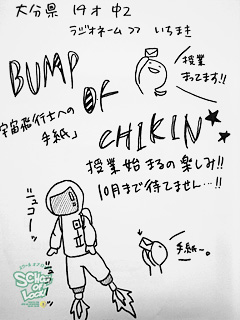 大分県 14才 中2
ラジオネーム>> いちまき
授業
まってます!!
BUMP
OF
CHIKIN
「宇宙飛行士への
手紙」
授業始まるの楽しみ!!
10月まで待てません…!!
ジュコーッ
ジュコーッ
手紙ー。
SCHOOL
OF
LOCK!